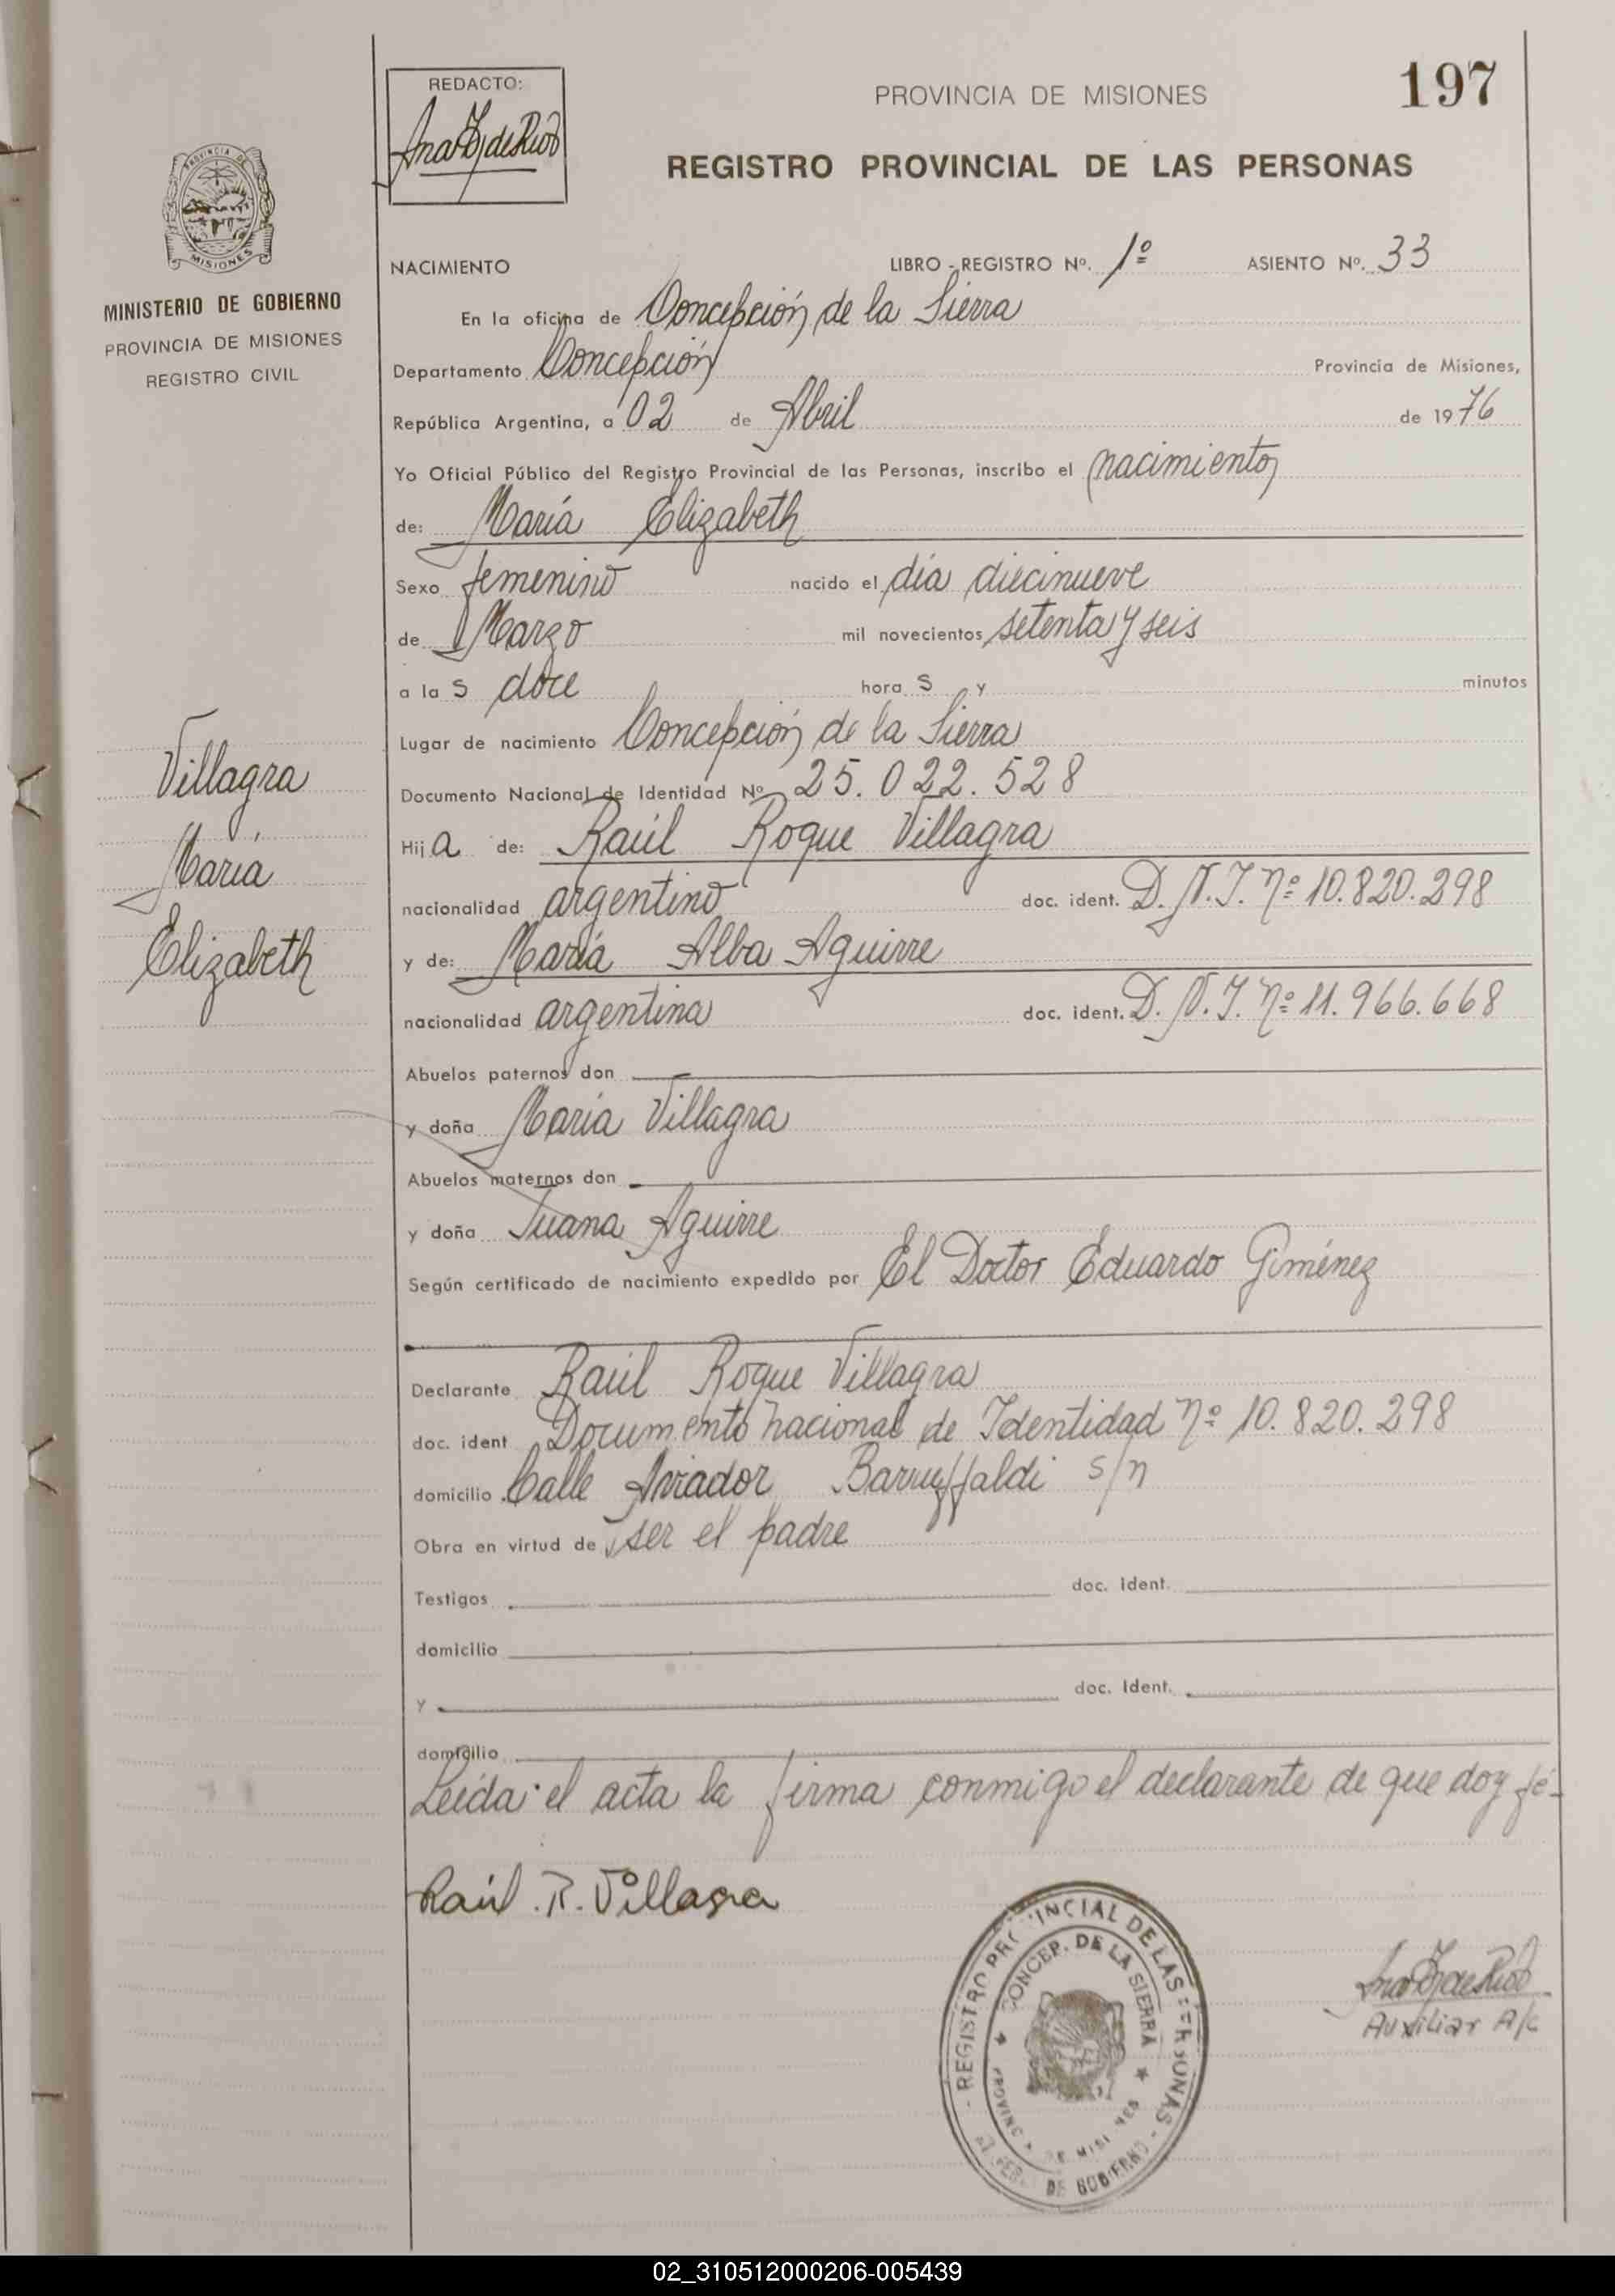 197
REDACTO:
PROVINCIA DE MISIONES
REGISTRO PROVINCIAL DE LAS PERSONAS
PROVINCIA DE
MISIONES
MINISTERIO DE GOBIERNO
PROVINCIA DE MISIONES
REGISTRO CIVIL
NACIMIENTO LIBRO - REGISTRO Nº. 1º ASIENTO Nº. 33
En la oficina de Concepción de la Sierra
Departamento Concepción Provincia de Misiones,
República Argentina, a 02 de Abril de 1976
Yo Oficial Público del Registro Provincial de las Personas, inscribo el nacimiento
de: María Elizabeth
Sexo femenino nacido el día diecinueve
de Marzo mil novecientos setenta y seis
a la s doce hora s y minutos
Lugar de nacimiento Concepción de la Sierra
Documento Nacional de Identidad Nº 25.022.528
Hija de: Raúl Roque Villagra
nacionalidad argentino doc. ident. D.N.I. nº 10.820.298
y de: María Alba Aguirre
nacionalidad argentina doc. ident. D.N.I. nº 11.966.668
Abuelos paternos don
y doña María Villagra
Abuelos maternos don
y doña Juana Aguirre
Según certificado de nacimiento expedido por El Doctor Eduardo Giménez
Declarante Raúl Roque Villagra
doc. ident Documento nacional de Identidad nº 10.820.298
domicilio Calle Aviador Barruffaldi s/n
Obra en virtud de ser el padre
Testigos doc. ident.
domicilio
y doc. Ident.
domicilio
Leída el acta la firma conmigo el declarante de que doy fé-
Villagra
María
Elizabeth
Raúl. R. Villagra
Auxiliar A/c
REGISTRO PROVINCIAL DE LAS PERSONAS
CONCEP. DE LA SIERRA
DE GOBIERNO
02_310512000206-005439